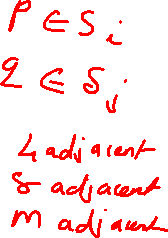 P ∈ S i
2 ∈ S j
4 adjacent
8 adjacent
m adjacent